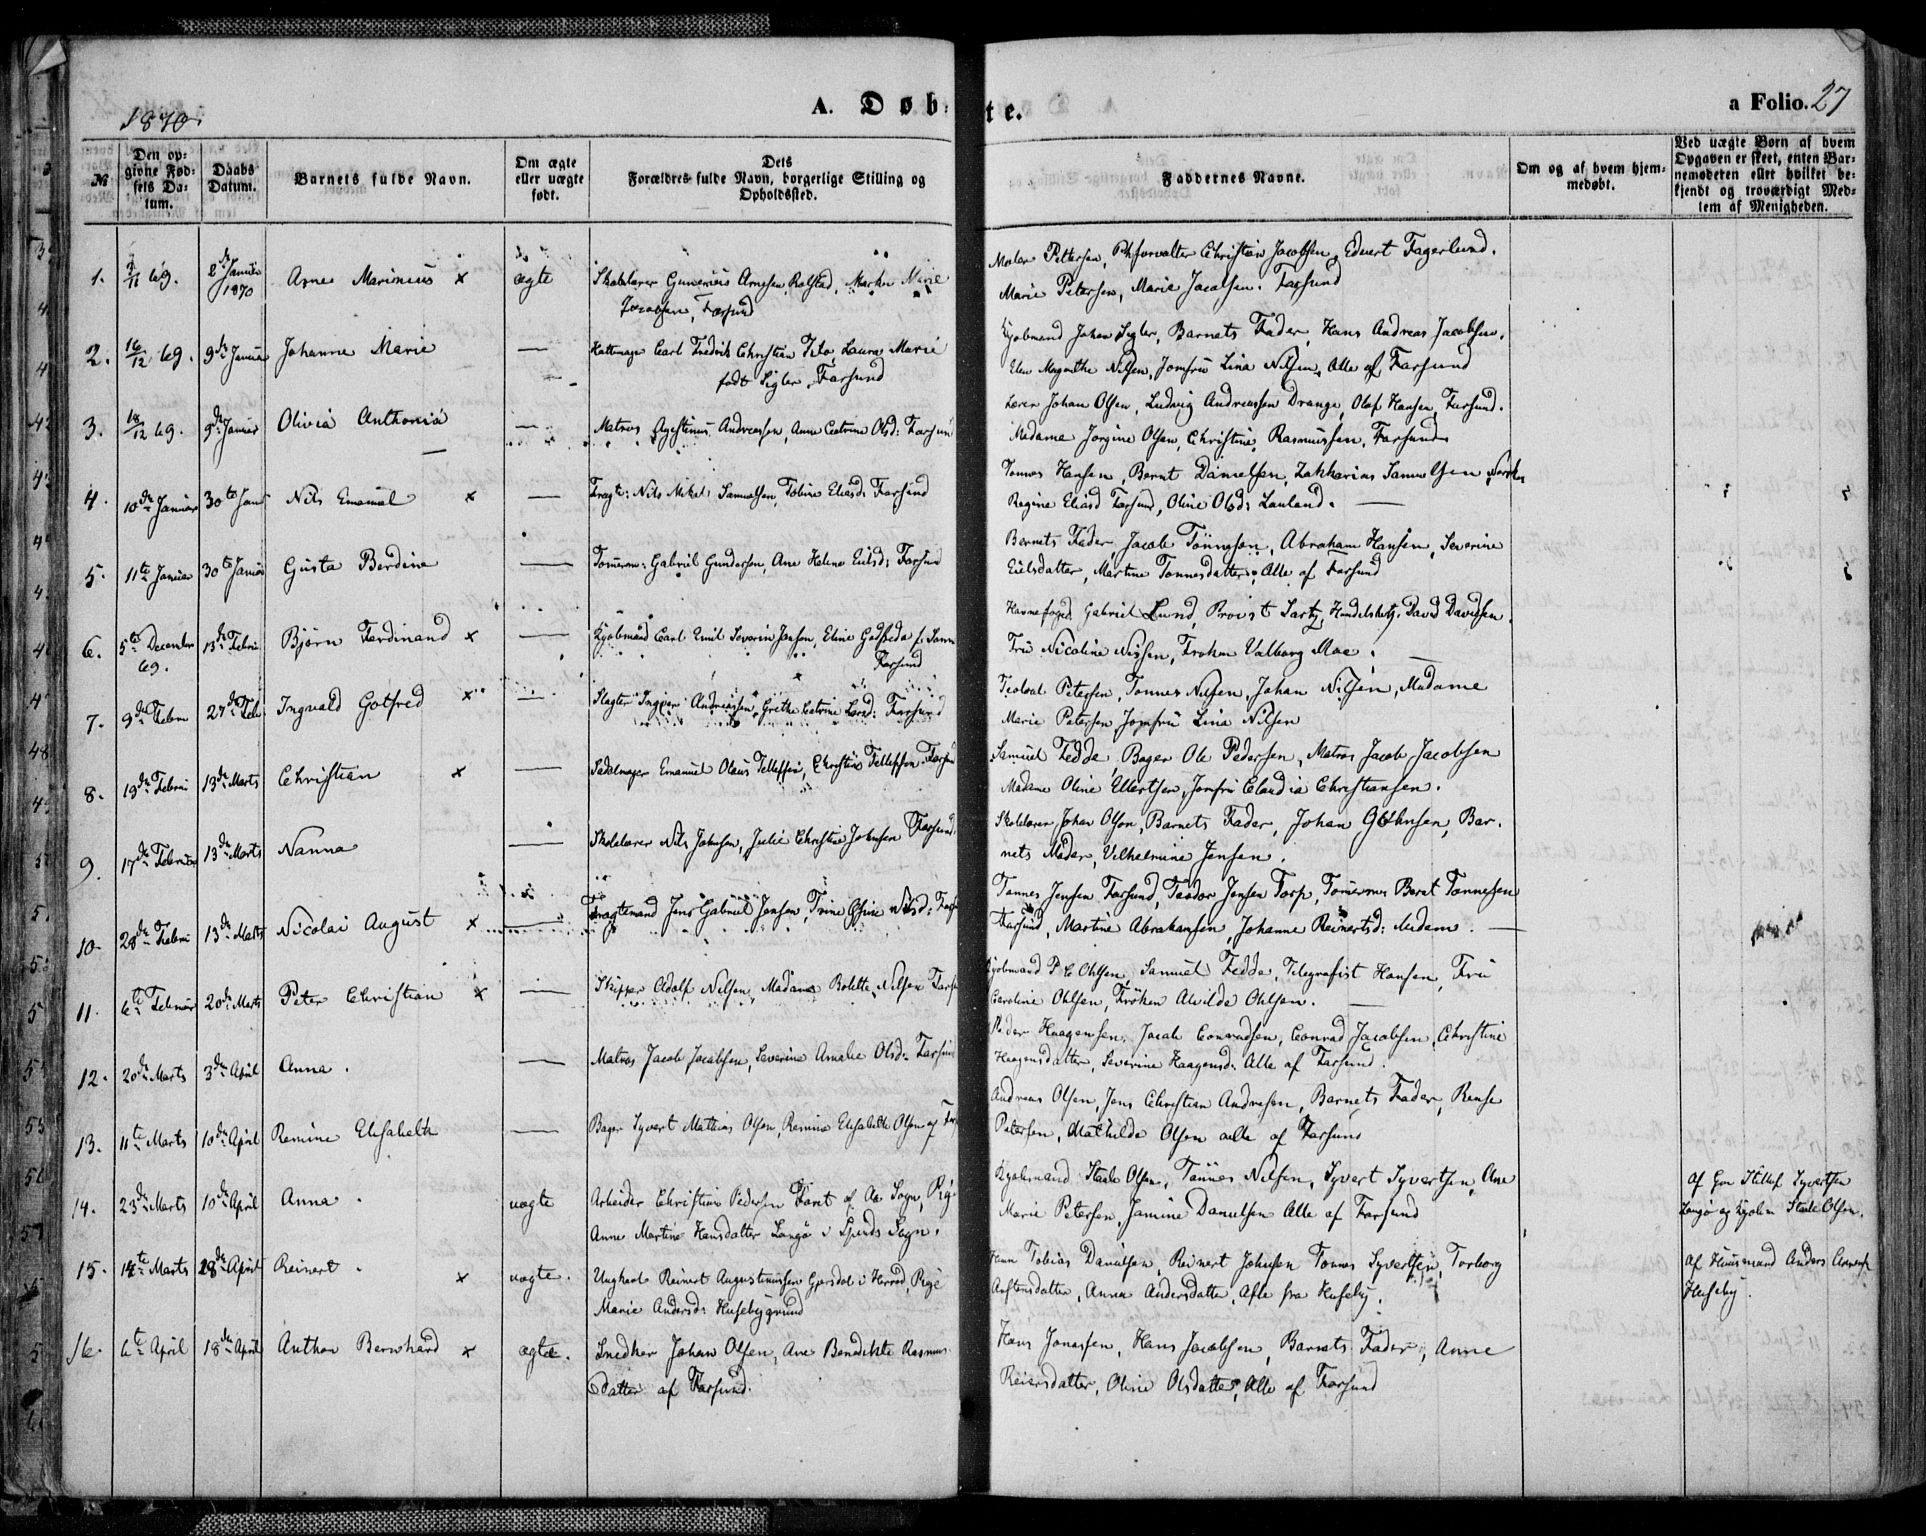 1870.
A. Døb- te.
a Folio. 27
№
Den opgivne Fødsels Datum.
Daabs Datum.
Barnets fulde Navn.
Om ægte eller uægte født.
Dets Forældres fulde Navn, borgerlige Stilling og Opholdssted.
Faddernes Navne.
Om og af hvem hjemmedøbt.
Ved uægte Børn af hvem Opgaven er skeet, enten Barnemoderen eller hvilket bekjendt og troværdigt Medlem af Menigheden.
1. 69. 2den Januar 1870 Arne Marinius x ægte Skolelærer Gunerius Arnesen Rolstad, Marie
Jacobsen, Farsund
Petersen, Christian Jacobsen, Edvert Fagerlund.
Marie Petersen, Marie Jacobsen. Farsund
2. 16/12 69. 9de Januar Johanne Marie — Hattemager Carl Fredrik Christian Thilo, Laura Marie
født Sigler, Farsund
Kjøbmand Johan Sigler, Barnets Fader, Hans Andreas Jacobsen.
Elen Margrethe Nilsen, Jomfru Lina Nilsen, Alle af Farsund
3. 18/12 69. 9de Januar Olivia Anthonia — Matros Agustinus Andreassen, Anne Catrine Olsd: Farsund
Lærer Johan Olsen, Ludvig Andreassen Drange, Olaf Hansen, Farsund.
Madame Jorgine Olsen, Christine Rasmussen, Farsund
4. 10de Januar 30te Janr Nils Emanuel x — Fragtm: Nils Mikal Samuelsen, Tobine Eliasd: Farsund
Tønnes Hansen, Bernt Danielsen, Zakkarias Samuelsen
Regine Eliasd Farsund, Oline Olsd: Lauland. —
5. 11te Januar 30te Januar Gusta Berdine — Tømmerm: Gabriel Gundersen, Ane Helene Eilsd: Farsund
Barnets Fader, Jacob Tønnesen, Abraham Hansen, Severine
Eilsdatter, Martine Tønnesdatter, Alle af Farsund
6. 5te December 69. 13de Februar Bjørn Ferdinand x — Kjøbmand Carl Emil Severin Jensen, Eline Godfreda f.
Farsund
Havnefoged Gabriel Lund, Provst Sartz, David Davidsen.
Fru Nicoline Nissen, Frøken Valborg Moe. —
7. 9de Febru 27de Feb Ingvald Gotfred x — Slagter Ingver Andreassen, Grethe Catrine Larsd: Farsund
Teolval Petersen, Tønnes Nilsen, Johan Nilsen, Madame
Marie Petersen Jomfru Lina Nilsen
8. 19de Febru 13de Marts Christian x — Sadelmager Emanuel Olaus Tellefsen, Christine Tellefsen Farsund
Samuel Fedde, Bager Ole Pedersen, Matros Jacob Jacobsen
Madame Oline Ellertsen, Jomfru Claudia Christiansen.
9. 17de Februar 13de Marts Nanna — Skolelærer Nils Johnsen, Julie Christine Johnsen Farsund.
Skolelærer Johan Olsen, Barnets Fader, Johan Johnsen, Bar-
nets Moder, Vilhelmine Jensen.
10. 28de Febru 13de Marts Nicolai August x — Fragtemand Jens Gabriel Jensen, Trine Nilsd:
Tønnes Jensen Farsund, Teodor Jensen Torp, Tømmerm Berat Tønnesen
Farsund, Martine Abrahamsen, Johanne Reinertsd: —
11. 6te Februar 20de Marts Peter Christian x — Skipper Adolf Nilsen, Madame Bolette Nilsen Farsund
Kjøbmand P C Ohlsen, Samuel Fedde, Telegrafist Hansen, Fru
Caroline Ohlsen, Frøken Alvilde Ohlsen. —
12. 20de Marts 3de April Anna. — Matros Jacob Jacobsen, Severine Amalie Olsd: Farsund
Peder Haagensen, Jacob Conradsen, Conrad Jacobsen, Christine
Haagensdatter, Severine Haagensd: Alle af Farsund.
13. 11te Marts 10de April Remine Elisabeth — Bager Syvert Mathias Olsen, Remine Elisabeth Olsen af Far
Andreas Olsen, Jens Christian Andresen, Barnets Fader,
Petersen, Mathilde Olsen alle af Farsund
14. 23de Marts 10de April Anna. uægte Arbeider Christian Pedersen Foret af Aa Sogn, Pige
Anne Martine Hansdatter Langø i Spinds Sogn.
Kjøbmand Steele Olsen, Tønnes Nilsen, Syvert Syvertsen, Ane
Marie Petersen, Jamine Danielsen Alle af Farsund
Af Syvertsen
Langø og Kjøbm Steele Olsen.
15. 14te Marts 28de April Reinert. x uægte. Ungkarl Reinert Augustinussen Gjersdal i Herred, Pige
Marie Andersd: Husebygrund
Tobias Danielsen, Reinert Johnsen Tønnes Syvertsen, Torborg
Anstensdatter, Anna Andersdatter, Alle fra Huseby.
Af Huusmand Anders
Huseby.
16. 6te April 18de April Anthon Bernhard x ægte. Snedker Johan Olsen, Ane Benedikte Rasmus-
datter af Farsund.
Hans Jonassen, Hans Jacobsen, Barnets Fader, Anne
Reiersdatter, Oline Olsdatter, Alle af Farsund